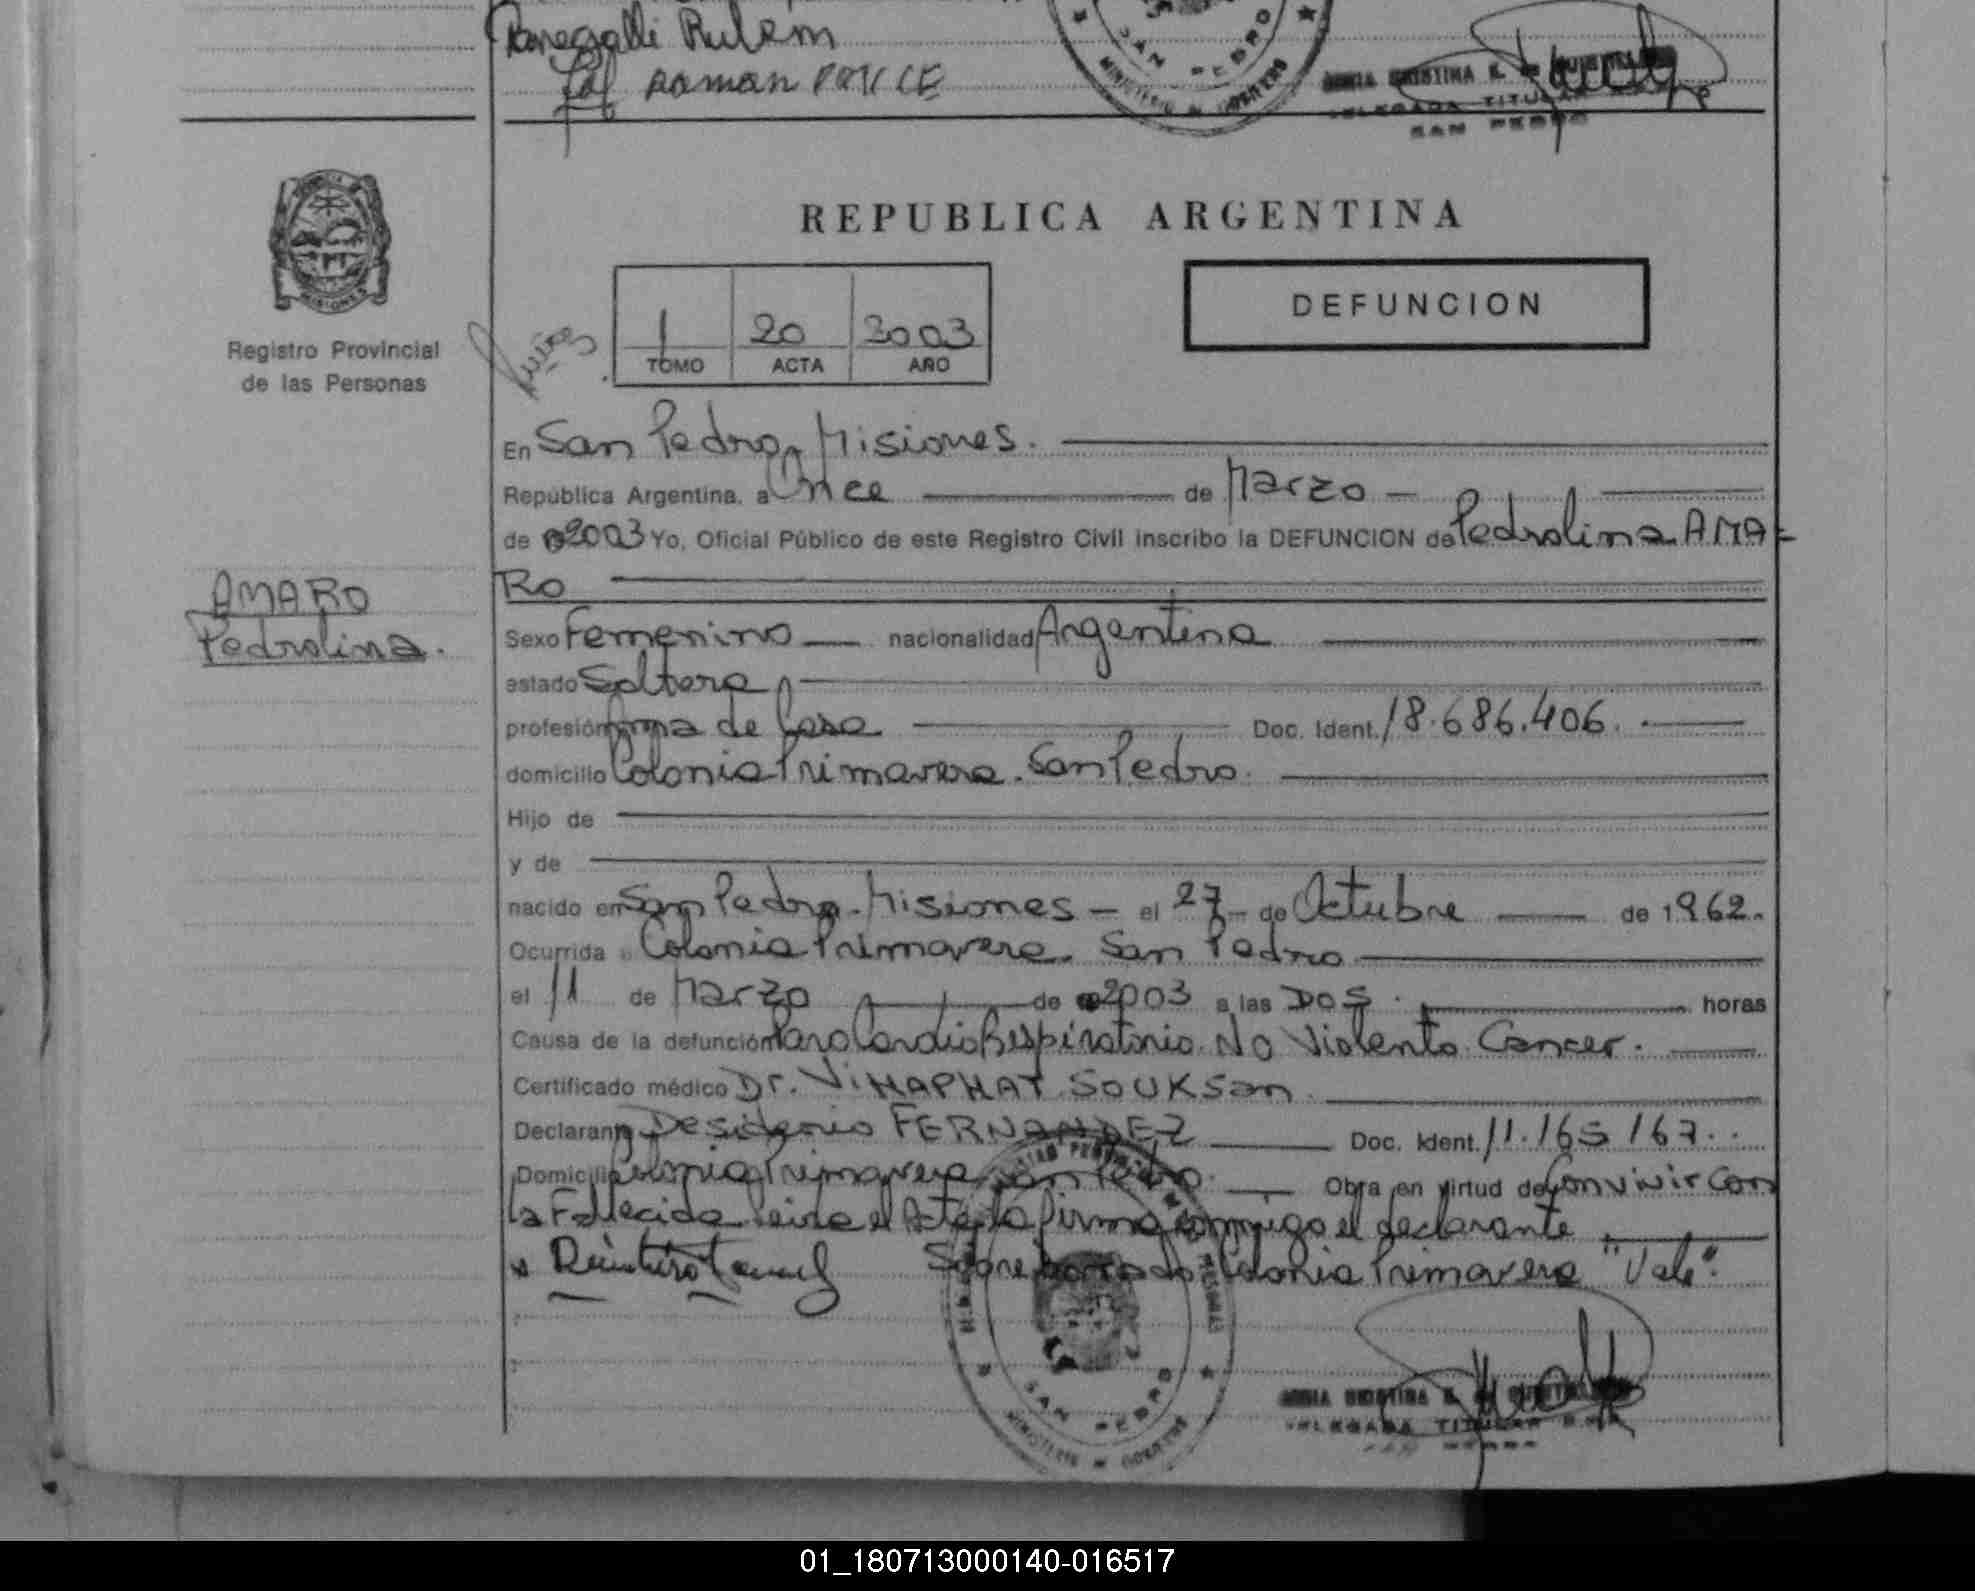 Ruben
Roman
SAN PEDRO
MINISTERIO DE GOBIERNO
CRISTINA
DELEGADA TITULAR
SAN PEDRO
MISIONES
Registro Provincial
de las Personas
REPUBLICA ARGENTINA
DEFUNCION
1 20 2003
TOMO ACTA AÑO
En San Pedro, Misiones.
República Argentina, a Once de Marzo
de 2003 Yo, Oficial Público de este Registro Civil inscribo la DEFUNCION de Pedrolina AMA-
RO
AMARO
Pedrolina.
Sexo Femenino nacionalidad Argentina
estado Soltera
profesión Ama de Casa Doc. Ident. 18.686.406.
domicilio Colonia Primavera. San Pedro.
Hijo de
y de
nacido en San Pedro. Misiones - el 27 - de Octubre de 1962.
Ocurrida Colonia Primavera. San Pedro
el 11 de Marzo de 2003 a las Dos. horas
Causa de la defunción Paro Cardio Respiratorio. No Violento. Cancer.
Certificado médico Dr. VIHAPHAT SOUKSan.
Declarante Desiderio FERNANDEZ Doc. Ident. 11.165.167.
Domicilio Colonia Primavera San Pedro. Obra en virtud de Convivir Con
la Fallecida Leida el Acta la firma conmigo el declarante
Sobre borrado Colonia Primavera "Vale".
SAN PEDRO
MINISTERIO DE GOBIERNO
CRISTINA
DELEGADA TITULAR
01_180713000140-016517